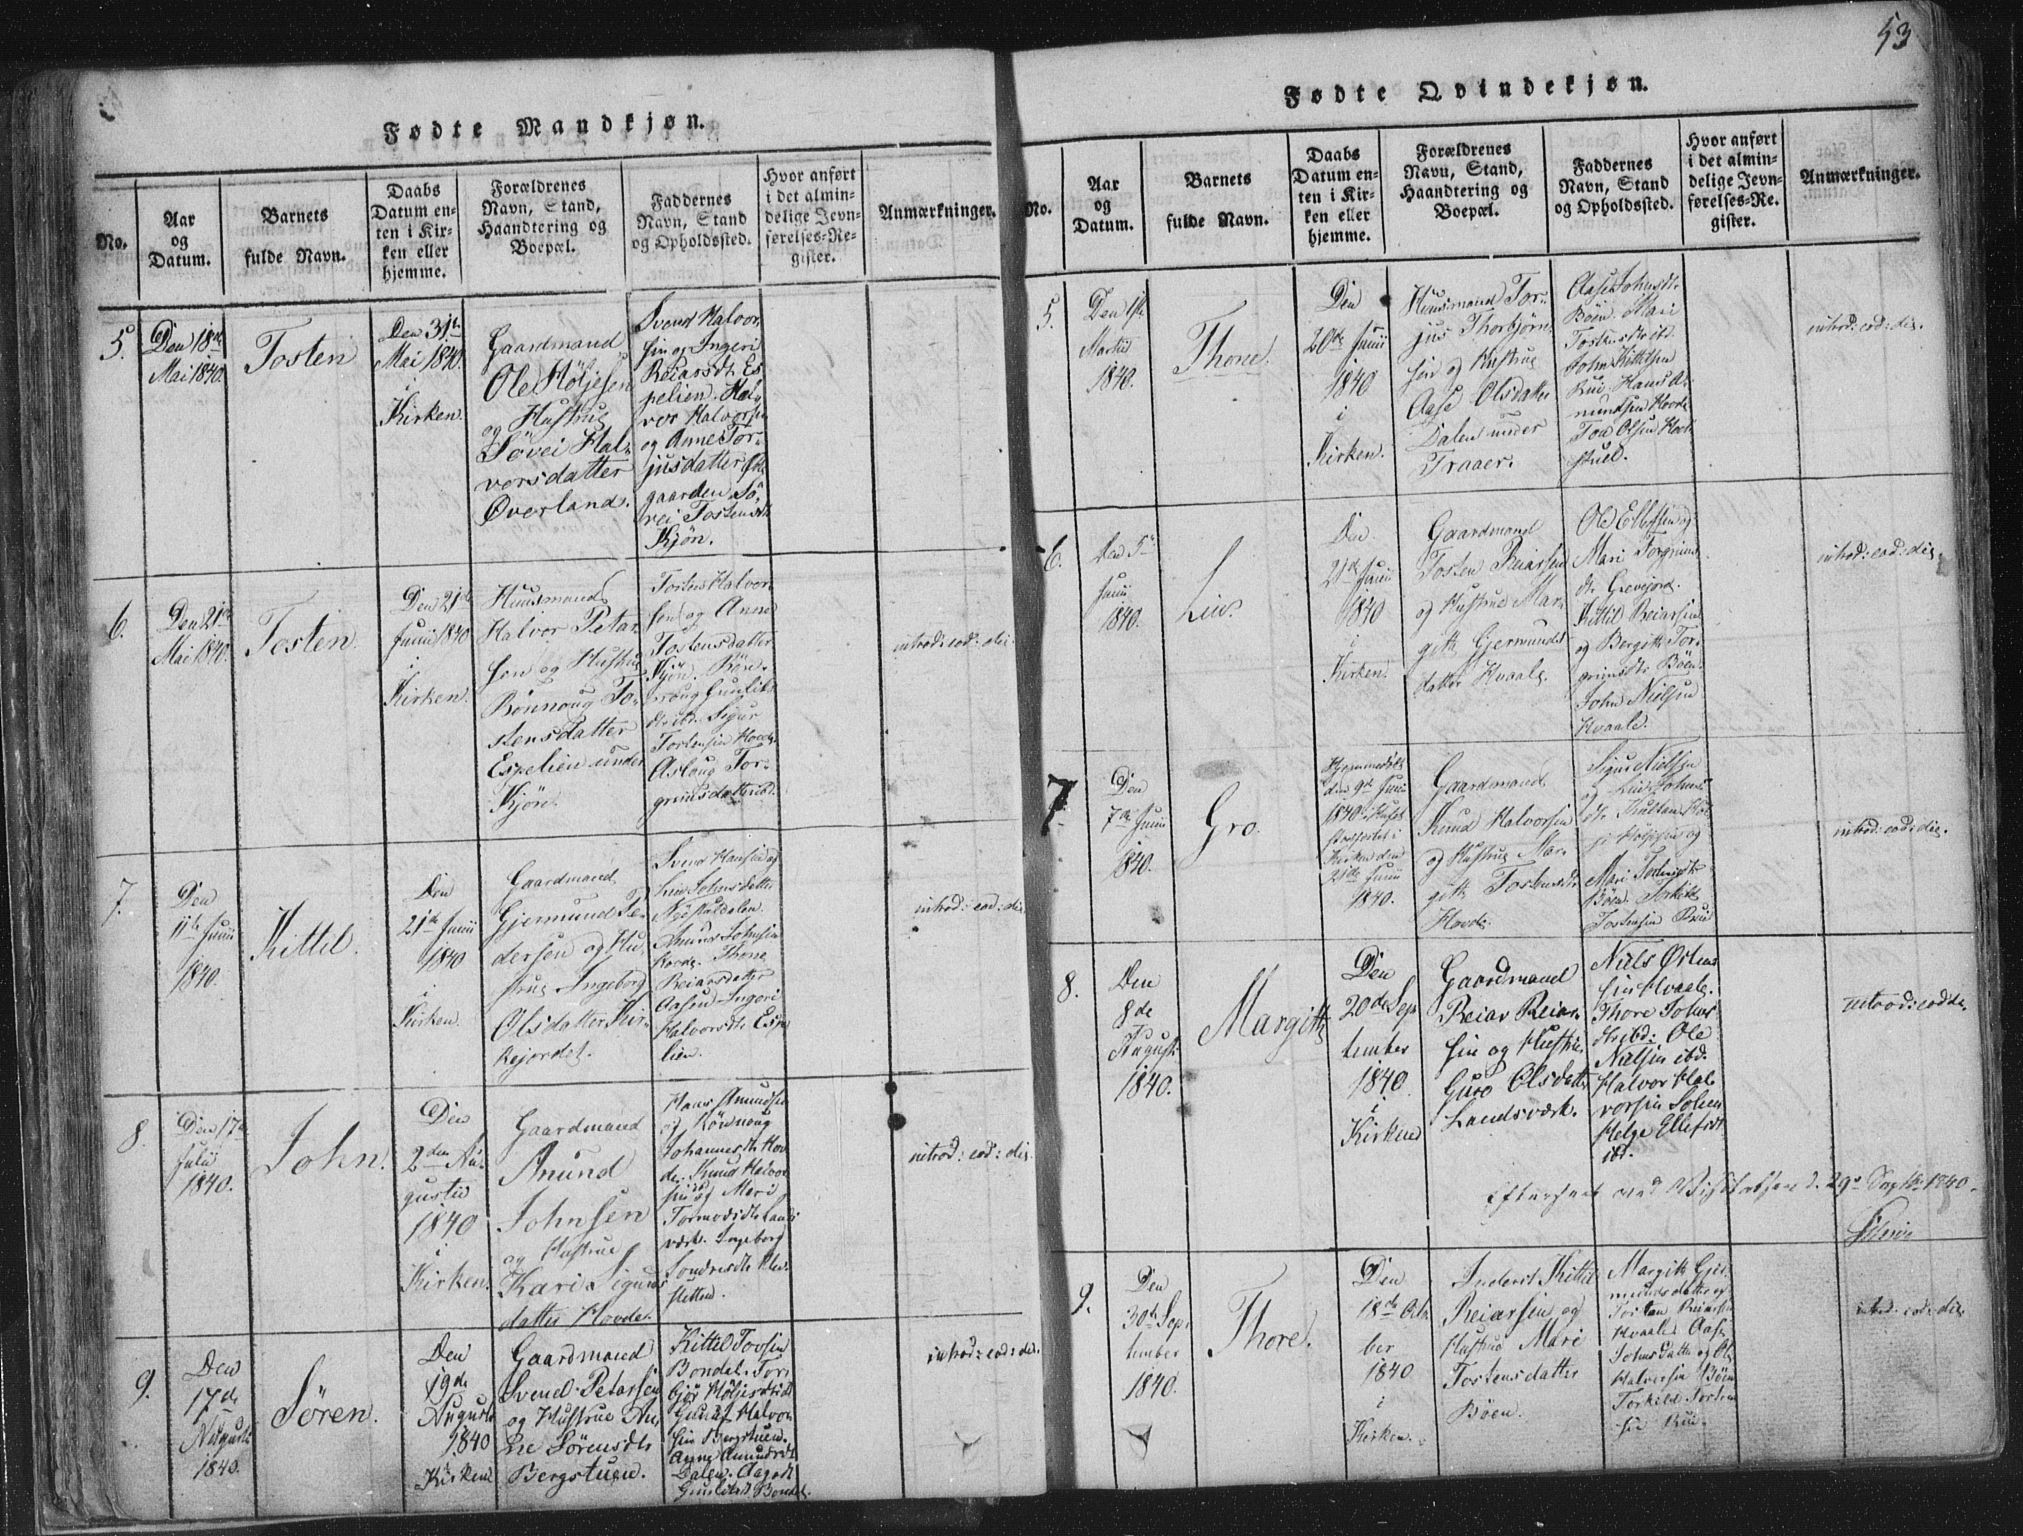 53
Fødte Mandkjøn.
No.
Aar
og
Datum.
Barnets
fulde Navn.
Daabs
Datum en-
ten i Kir-
ken eller
hjemme.
Forældrenes
Navn, Stand,
Haandtering og
Boepæl.
Faddernes
Navn, Stand
og Opholdssted.
Hvor anført
i det almin-
delige Jevn-
førelses-Re-
gister.
Anmærkninger.
5.
Den 18de
Mai 1840.
Tosten
Den 31te
Mai 1840.
i
Kirken.
Gaardmand
Ole Höljesen
og Hustrue
Sövei Hal-
vorsdatter
Överland.
Svend Halvor-
sen og Ingeri
Reiarsdtr Es-
pelien. Hal-
vor Halvorsen
og Anne Tor-
jusdatter
gaarden Sö-
vei Tostensdtr
Kjön.
6.
Den 21de
Mai 1840.
Tosten.
Den 21de
Junii 1840
i
Kirken.
Huusmand
Halvor Petar-
sen og Hustrue
Rönnoug To-
stensdatter
Espelien under
Kjön.
Tosten Halvor-
sen og Anne
Tostensdatter
Kjön. Rön-
noug Gunliks-
dtr ibd. Sigur
Tostensen Hovde
Aslaug Tor-
grimsdatter ibd.
introd: eod: die.
7.
Den
11te Junii
1840.
Kittil.
Den
21de Junii
1840
i
Kirken.
Gaardmand
Gjermund Pe-
dersen og Hu-
strue Ingeborg
Olsdatter Kir-
kejordet.
Svend Hansen og
Liv Johnsdatter
Anund Johnsen
Hovde. Thone
Reiarsdatter
Aasen. Ingeri
Halvorsdtr Espe-
lien.
introd: eod: die.
8.
Den 17de
Julii
1840.
John.
Den
2den Au-
gustii
1840
i
Kirken.
Gaardmand
Anund
Johnsen
og Hustrue
Kari Sigurs-
datter Hovde.
Hans Anundsen
og Rönnoug
Johannesdtr Hov-
de. Knud Halvor-
sen og Mari
Tormodsdtr Lands-
værk. Ingeborg
Sondresdtr Klev-
stetten.
introd: eod: die.
9.
Den
17de
August
1840.
Sören.
Den
19de
August
1840
i
Kirken
Gaardmand
Svend Petarsen
og Hustrue An-
ne Sörensdtr
Bergstuen.
Kittil Tovsen
Bondal. Tor-
björ Höljesdtr
Gunuf Halvor-
sen Bergstuen.
Anne Amundsdtr
Dalen. Aagot
Gunlikisd. Bondal.
introd: eod: die.
Fødte Qvindekjøn.
No.
Aar
og
Datum.
Barnets
fulde Navn.
Daabs
Datum en-
ten i Kir-
ken eller
hjemme.
Forældrenes
Navn, Stand,
Haandtering og
Boepæl.
Faddernes
Navn, Stand
og Opholdssted.
Hvor anført
i det almin-
delige Jevn-
førelses-Re-
gister.
Anmærkninger.
5.
Den 1ste
Martii
1840.
Thone.
Den
20de Junii
1840
i
Kirken.
Huusmand Tor-
jus Thorbjörn-
sen og Hustrue
Aase Olsdatter
Dalen under
Traaer.
Aase Johnsdtr
Böen. Mari
Tostensdtr ibd.
John Kittilsen
Rui. Hans A-
nundsen Hovde
Tov Olsen Hovde-
stuel.
introd: eod: die.
6.
Den 5te
Junii
1840.
Liv.
Den
21de Junii
1840
i
Kirken.
Gaardmand
Tosten Reiarsen
og Hustrue Mar-
gith Gjermunds-
datter Hvaale.
Ole Ellefsen og
Mari Torgrims-
dtr Grevejord.
Kittil Reiarsen
og Bergith Tor-
grimsdtr Böen.
John Nielsen
Hvaale.
introd: eod: die.
7.
Den
7de Junii
1840.
Gro.
Hjemmedöbt
den 9de Junii
1840.
i
Kirken den
21de Junii
1840.
Gaardmand
Knud Halvorsen
og Hustrue Mar-
gith Tostensdtr
Hovde.
Sigur Nielsen
og Liv Johns-
dtr
Höljesen og
Mari Tostensdtr
Böen. Torkild
Tostensen Rui
introd: eod: die.
8.
Den
8de
August
1840.
Margith
Den
20de Sep-
tember
1840.
i
Kirken
Gaardmand
Reiar Reiar-
sen og Hustrue
Guro Olsdatter
Landsværk.
Niels Östens-
sen Hvaale.
Thore Johns-
dtr ibd: Ole
Nielsen ibd.
Halvor Hal-
vorsen Solien
Helge Ellefsdtr
ibd.
introd: eod die.
Efterseet ved Visitatsen d. 29de Septbr 1840.
9.
Den
30te Sep-
tember
1840.
Thore.
Den
18de Octo-
ber
1840
i
Kirken.
Inderst Kittil
Reiarsen og
Hustrue Mari
Tostensdatter
Böen.
Margith Gjer-
mundsdatter og
Tosten Reiarsen
Hvaale. Aase
Johnsdatter og Ole
Halvorsen Böen
Torkild Tosten-
sen Rui.
introd: eod: die.